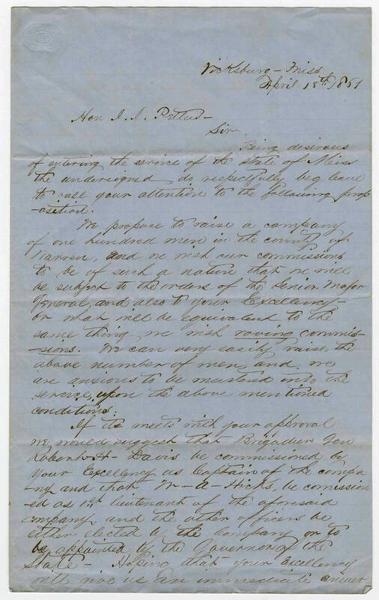 Vicksburg - Miss
April 15th 1861
Hon J. J. Pettus -
Sir
Being desirous
of entering the service of the state of Miss
the undersigned do respectfully beg leave
to call your attention to the following prop
-osition.
We propose to raise a company
of one hundred men in the county of
Warren, and we wish our commissions
to be of such a nature that we will
be subject to the orders of the Senior Major
General, and also to your Excellency -
or what will be equivalent to the
same thing we wish roving commis-
-sions. We can very easily raise the
above number of men and we
are anxious to be mustered into the
service, upon the above mentioned
conditions.
If it meets with your approval
we would suggest that Brigadier Gen
Robert H - Davis be commissioned by
your Excellency as Captain of the compa
-ny and that W - A - Hicks, be comission
-ed as 1st lieutenant of the aforesaid
company and the other officers be
either elected by the company or to
be appointed by the Governor of the
State - Hoping that your Excellency
will give us an immediate answer